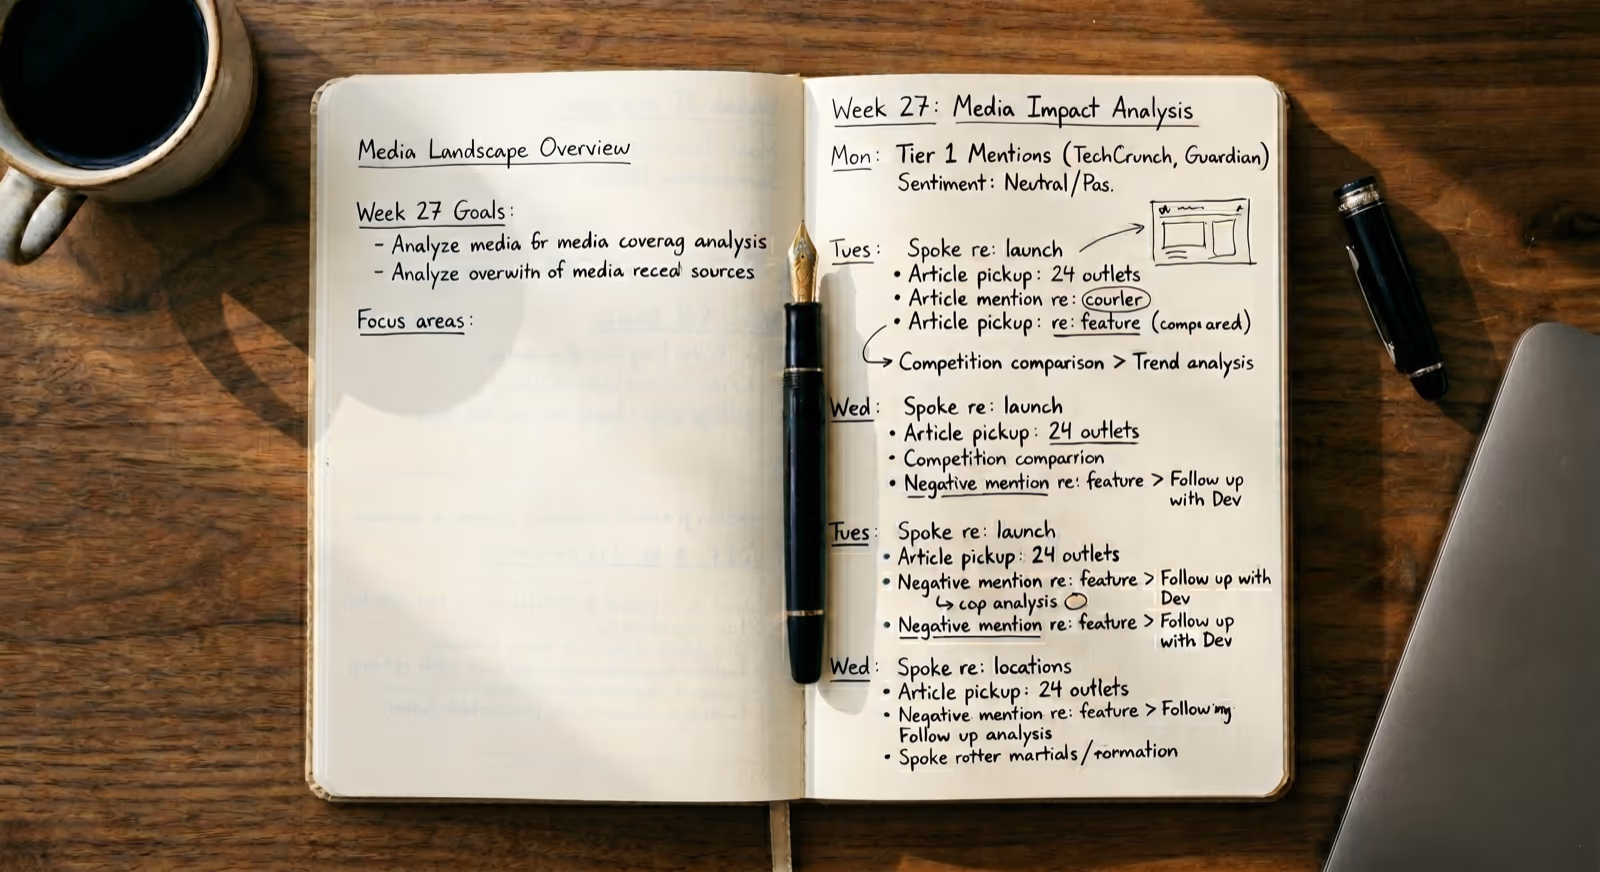 Media Landscape Overview
Week 27 Goals:
- Analyze media fr media coverag analysis
- Analyze overwith of media recea sources
Focus areas:
Week 27: Media Impact Analysis
Mon: Tier 1 Mentions (TechCrunch, Guardian)
Sentiment: Neutral/Pas.
Tues: Spoke re: launch
• Article pickup: 24 outlets
• Article mention re: courler
• Article pickup: re: feature (compared)
Competition comparison > Trend analysis
Wed: Spoke re: launch
• Article pickup: 24 outlets
• Competition comparrion
• Negative mention re: feature > Follow up
with Dev
Tues: Spoke re: launch
• Article pickup: 24 outlets
• Negative mention re: feature > Follow up with
Dev
↳ cop analysis
• Negative mention re: feature > Follow up
with Dev
Wed: Spoke re: locations
• Article pickup: 24 outlets
• Negative mention re: feature > Following
Follow up analysis
• Spoke rotter martials/rormation